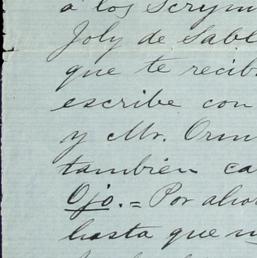 a los Scrym
Joly de Sabl
que te recib
escribe con
y Mr. Orm
también ca
Ojo. = Por aho
hasta que